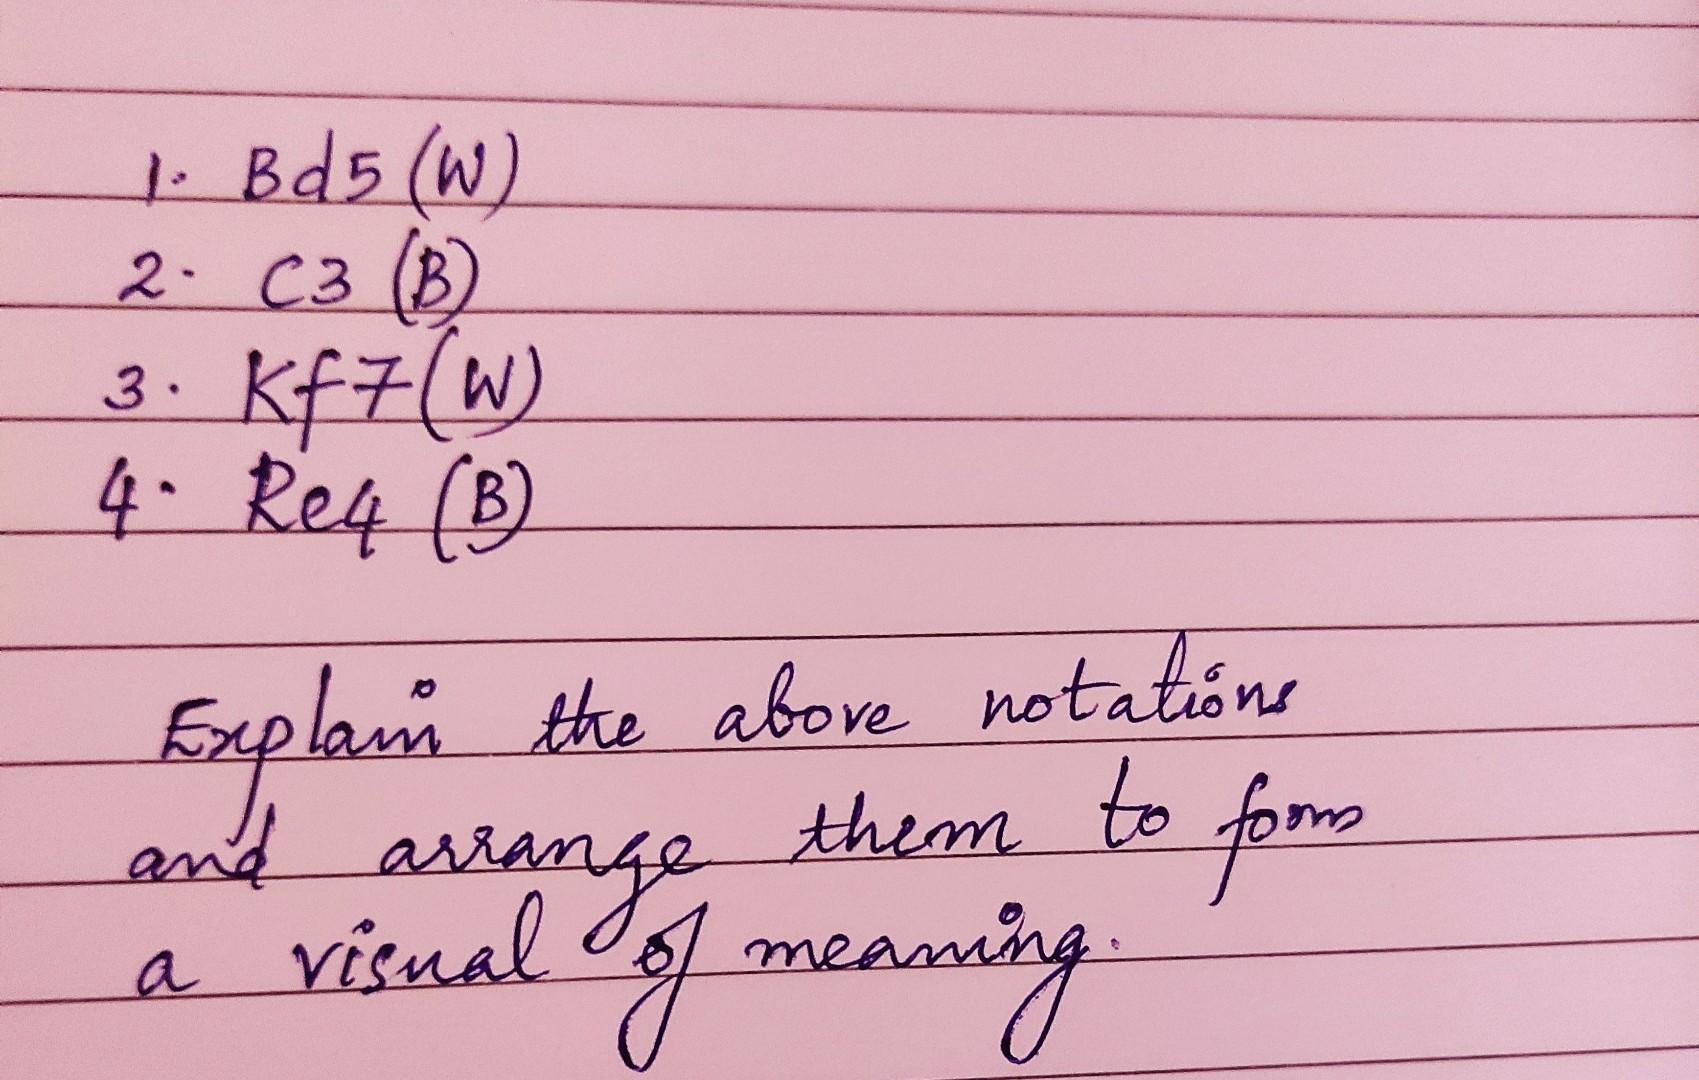 1. Bd5 (W)
2. C3 (B)
3. Kf7 (W)
4. Re4 (B)
Explain the above notations
and arrange them to form
a visual of meaning.